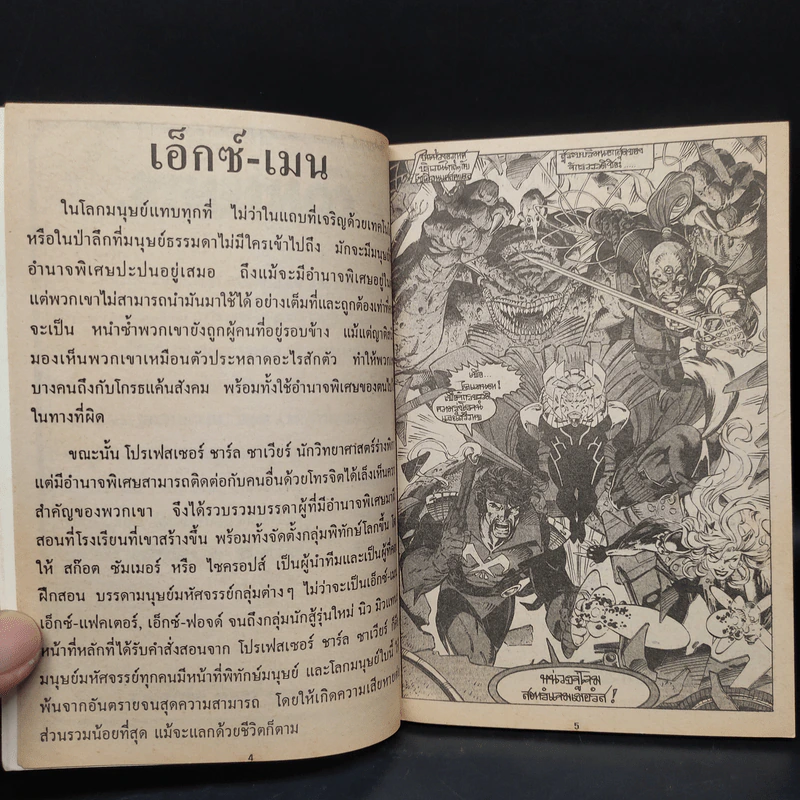 เอ็กซ์-เมน
ในโลกมนุษย์แทบทุกที่ ไม่ว่าในแถบที่เจริญด้วยเทคโน
หรือในป่าลึกที่มนุษย์ธรรมดาไม่มีใครเข้าไปถึง มักจะมีมนุษย์
อำนาจพิเศษปะปนอยู่เสมอ ถึงแม้จะมีอำนาจพิเศษอยู่ใน
แต่พวกเขาไม่สามารถนำมันมาใช้ได้ อย่างเต็มที่และถูกต้องเท่าที่
จะเป็น หนำซ้ำพวกเขายังถูกผู้คนที่อยู่รอบข้าง แม้แต่ญาติ
มองเห็นพวกเขาเหมือนตัวประหลาดอะไรสักตัว ทำให้พวก
บางคนถึงกับโกรธแค้นสังคม พร้อมทั้งใช้อำนาจพิเศษของตนไป
ในทางที่ผิด
ขณะนั้น โปรเฟสเซอร์ ชาร์ล ซาเวียร์ นักวิทยาศาสตร์ร่างพิ
แต่มีอำนาจพิเศษสามารถติดต่อกับคนอื่นด้วยโทรจิตได้เล็งเห็นความ
สำคัญของพวกเขา จึงได้รวบรวมบรรดาผู้ที่มีอำนาจพิเศษมา
สอนที่โรงเรียนที่เขาสร้างขึ้น พร้อมทั้งจัดตั้งกลุ่มพิทักษ์โลกขึ้น
ให้ สก๊อต ซัมเมอร์ หรือ ไซครอปส์ เป็นผู้นำทีมและเป็นผู้ที่
ฝึกสอน บรรดามนุษย์มหัศจรรย์กลุ่มต่างๆ ไม่ว่าจะเป็นเอ็กซ์-เมน
เอ็กซ์-แฟคเตอร์, เอ็กซ์-ฟอจด์ จนถึงกลุ่มนักสู้รุ่นใหม่ นิว มิวแทน
หน้าที่หลักที่ได้รับคำสั่งสอนจาก โปรเฟสเซอร์ ชาร์ล ซาเวียร์
มนุษย์มหัศจรรย์ทุกคนมีหน้าที่พิทักษ์มนุษย์ และโลกมนุษย์ใบนี้
พ้นจากอันตรายจนสุดความสามารถ โดยให้เกิดความเสียหาย
ส่วนรวมน้อยที่สุด แม้จะแลกด้วยชีวิตก็ตาม
4
หน่วยจู่โจม
สตาร์แจมเมอร์ส!
5